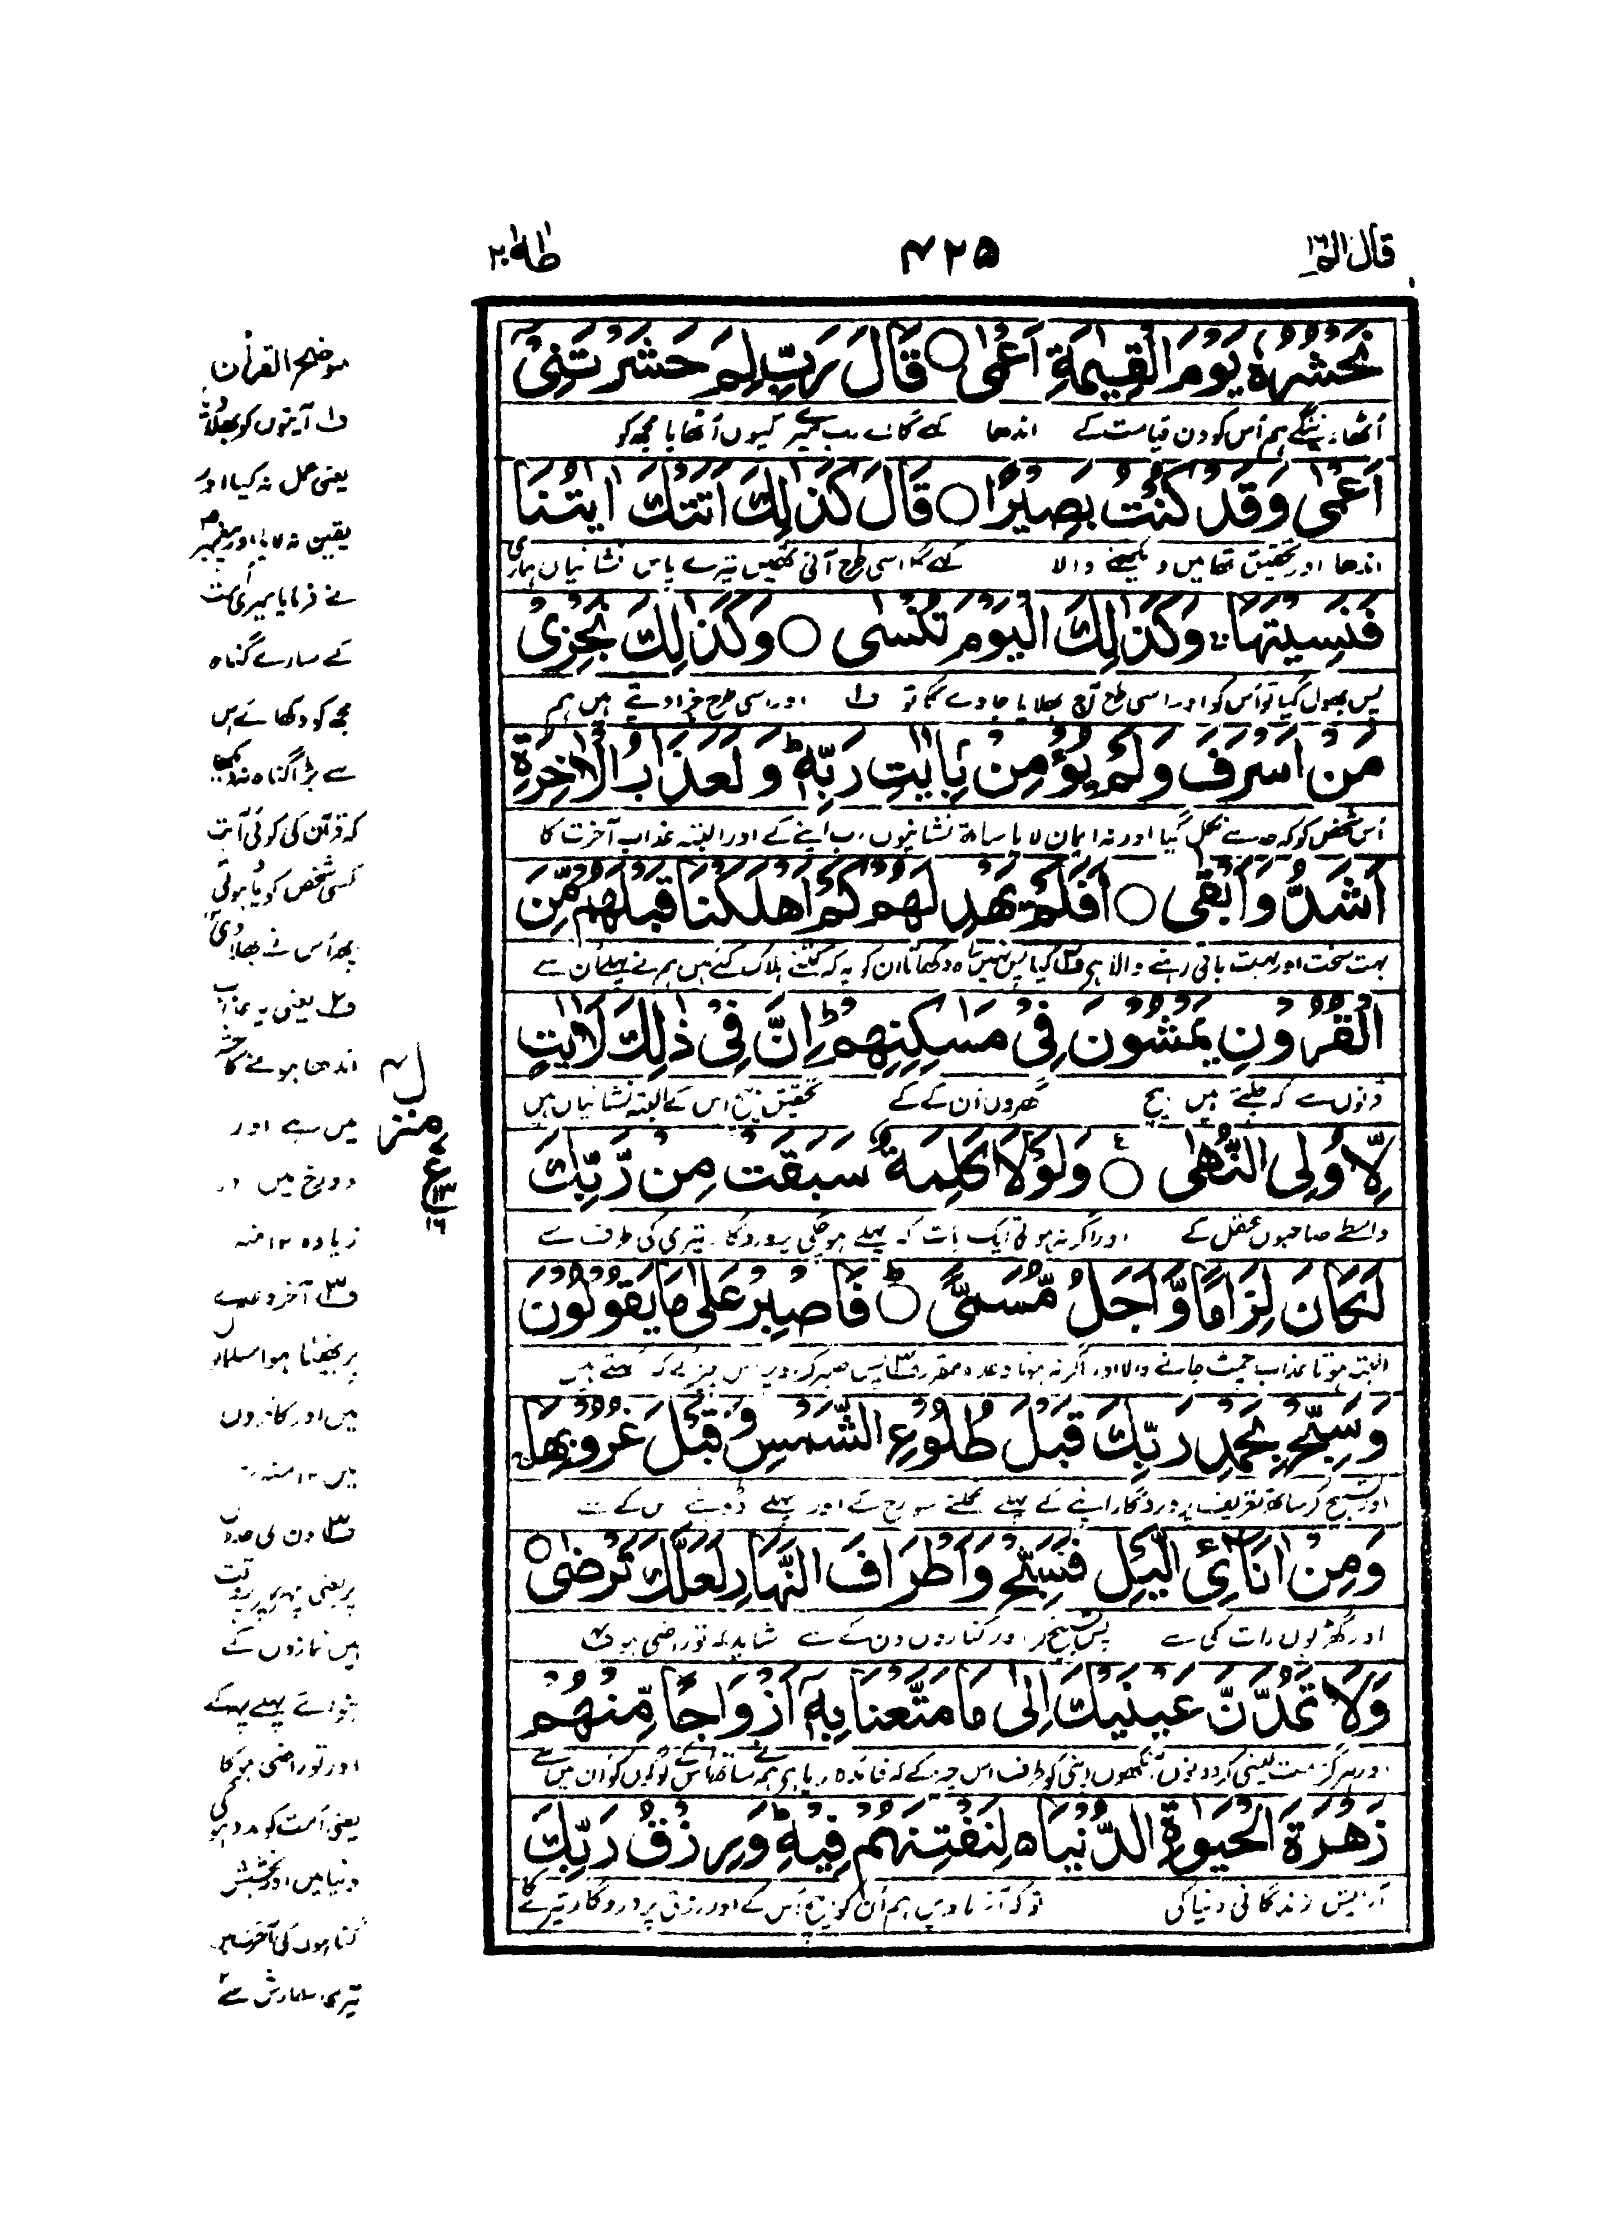 قال الم ١٦
٤٢٥
طٰهٰ ٢٠
نَحْشُرُهٗ يَوْمَ الْقِيٰمَةِ اَعْمٰى ○ قَالَ رَبِّ لِمَ حَشَرْتَنِیْۤ
اُٹھاوینگے ہم اُس کو دن قیامت کے اندھا کہے گا اے رب میرے کیوں اُٹھایا مجھ کو
اَعْمٰى وَقَدْ كُنْتُ بَصِيْرًا ○ قَالَ كَذٰلِكَ اَتَتْكَ اٰيٰتُنَا
اندھا اور تحقیق تھا میں دیکھنے والا کہے گا اسی طرح آئی تھیں تیرے پاس نشانیاں ہماری
فَنَسِيْتَهَا ۚ وَكَذٰلِكَ الْيَوْمَ تُنْسٰى ○ وَكَذٰلِكَ نَجْزِیْ
پس بھول گیا تو اُس کو اور اسی طرح آج بھلایا جاوے گا تو ف١ اور اسی طرح جزا دیتے ہیں ہم
مَنْ اَسْرَفَ وَلَمْ يُؤْمِنْ بِاٰيٰتِ رَبِّهٖ ؕ وَلَعَذَابُ الْاٰخِرَةِ
اُس شخص کو کہ حد سے نکل گیا اور نہ ایمان لایا ساتھ نشانیوں رب اپنے کے اور البتہ عذاب آخرت کا
اَشَدُّ وَاَبْقٰى ○ اَفَلَمْ يَهْدِ لَهُمْ كَمْ اَهْلَكْنَا قَبْلَهُمْ مِّنَ
بہت سخت اور بہت باقی رہنے والا ہے ف٢ کیا پس نہیں راہ دکھاتا ان کو یہ کہ کتنے ہلاک کئے ہیں ہم نے پہلے اُن سے
الْقُرُوْنِ يَمْشُوْنَ فِیْ مَسٰكِنِهِمْ ؕ اِنَّ فِیْ ذٰلِكَ لَاٰيٰتٍ
قرنوں سے کہ چلتے ہیں بیچ گھروں اُن کے کے تحقیق بیچ اس کے البتہ نشانیاں ہیں
لِّاُولِی النُّهٰى ○ وَلَوْلَا كَلِمَةٌ سَبَقَتْ مِنْ رَّبِّكَ
واسطے صاحبوں عقل کے اور اگر نہ ہوتی ایک بات کہ پہلے ہوچکی پروردگار تیری کی طرف سے
لَكَانَ لِزَامًا وَّاَجَلٌ مُّسَمًّى ○ ؕ فَاصْبِرْ عَلٰى مَا يَقُوْلُوْنَ
البتہ ہوتا عذاب چمٹ جانے والا اور اگر نہ ہوتا وعدہ مقرر ف٣ پس صبر کر اوپر اس چیز کے کہ کہتے ہیں
وَسَبِّحْ بِحَمْدِ رَبِّكَ قَبْلَ طُلُوْعِ الشَّمْسِ وَقَبْلَ غُرُوْبِهَا ۚ
اور تسبیح کر ساتھ تعریف پروردگار اپنے کے پہلے نکلنے سورج کے اور پہلے ڈوبنے اس کے سے
وَمِنْ اٰنَآئِ الَّيْلِ فَسَبِّحْ وَاَطْرَافَ النَّهَارِ لَعَلَّكَ تَرْضٰى ○
اور گھڑیوں رات کی سے پس تسبیح کر اور کناروں دن کے سے شاید کہ تو راضی ہو ف٤
وَلَا تَمُدَّنَّ عَيْنَيْكَ اِلٰى مَا مَتَّعْنَا بِهٖۤ اَزْوَاجًا مِّنْهُمْ
اور ہرگز مت لمبی کر دونوں آنکھوں اپنی کو طرف اس چیز کے کہ فائدہ دیا ہے ہم نے ساتھ اُس کے لوگوں کو اُن میں سے
زَهْرَةَ الْحَيٰوةِ الدُّنْيَا ۵ لِنَفْتِنَهُمْ فِيْهِ ؕ وَرِزْقُ رَبِّكَ
آرایش زندگانی دنیا کی توکہ آزماویں ہم اُن کو بیچ اُس کے اور رزق پروردگار تیرے کا
موضح القرآن
ف١ آیتوں کو بھلانا
یعنی عمل نہ کیا اور
یقین نہ لایا اور پیغمبر
نے فرمایا میری امت
کے سارے گناہ
مجھ کو دکھائے اس
سے بڑا گناہ نہ دیکھا
کہ قرآن کی کوئی آیت
کسی شخص کو یاد ہوئی
پھر اُس نے بھلا دی
ف٢ یعنی یہ عذاب
اندھا ہونے کا حشر
میں ہے اور
دوزخ میں اور
زیادہ ١٢ منہ
ف٣ آخر وعدے
پر بھیڑنا ہوا مسلمانوں
میں اور کافروں
میں ١٢ منہ
ف٤ دن کی حدوں
پر یعنی دوپہر پر وقت
ہیں نمازوں کے
اور تو راضی ہوگا
یعنی اُمت کو مدد ہوگی
دنیا میں اور بخشش
گناہوں کی آخرت میں
تیری سفارش سے
منزل ٤
ع
١٣
١٦